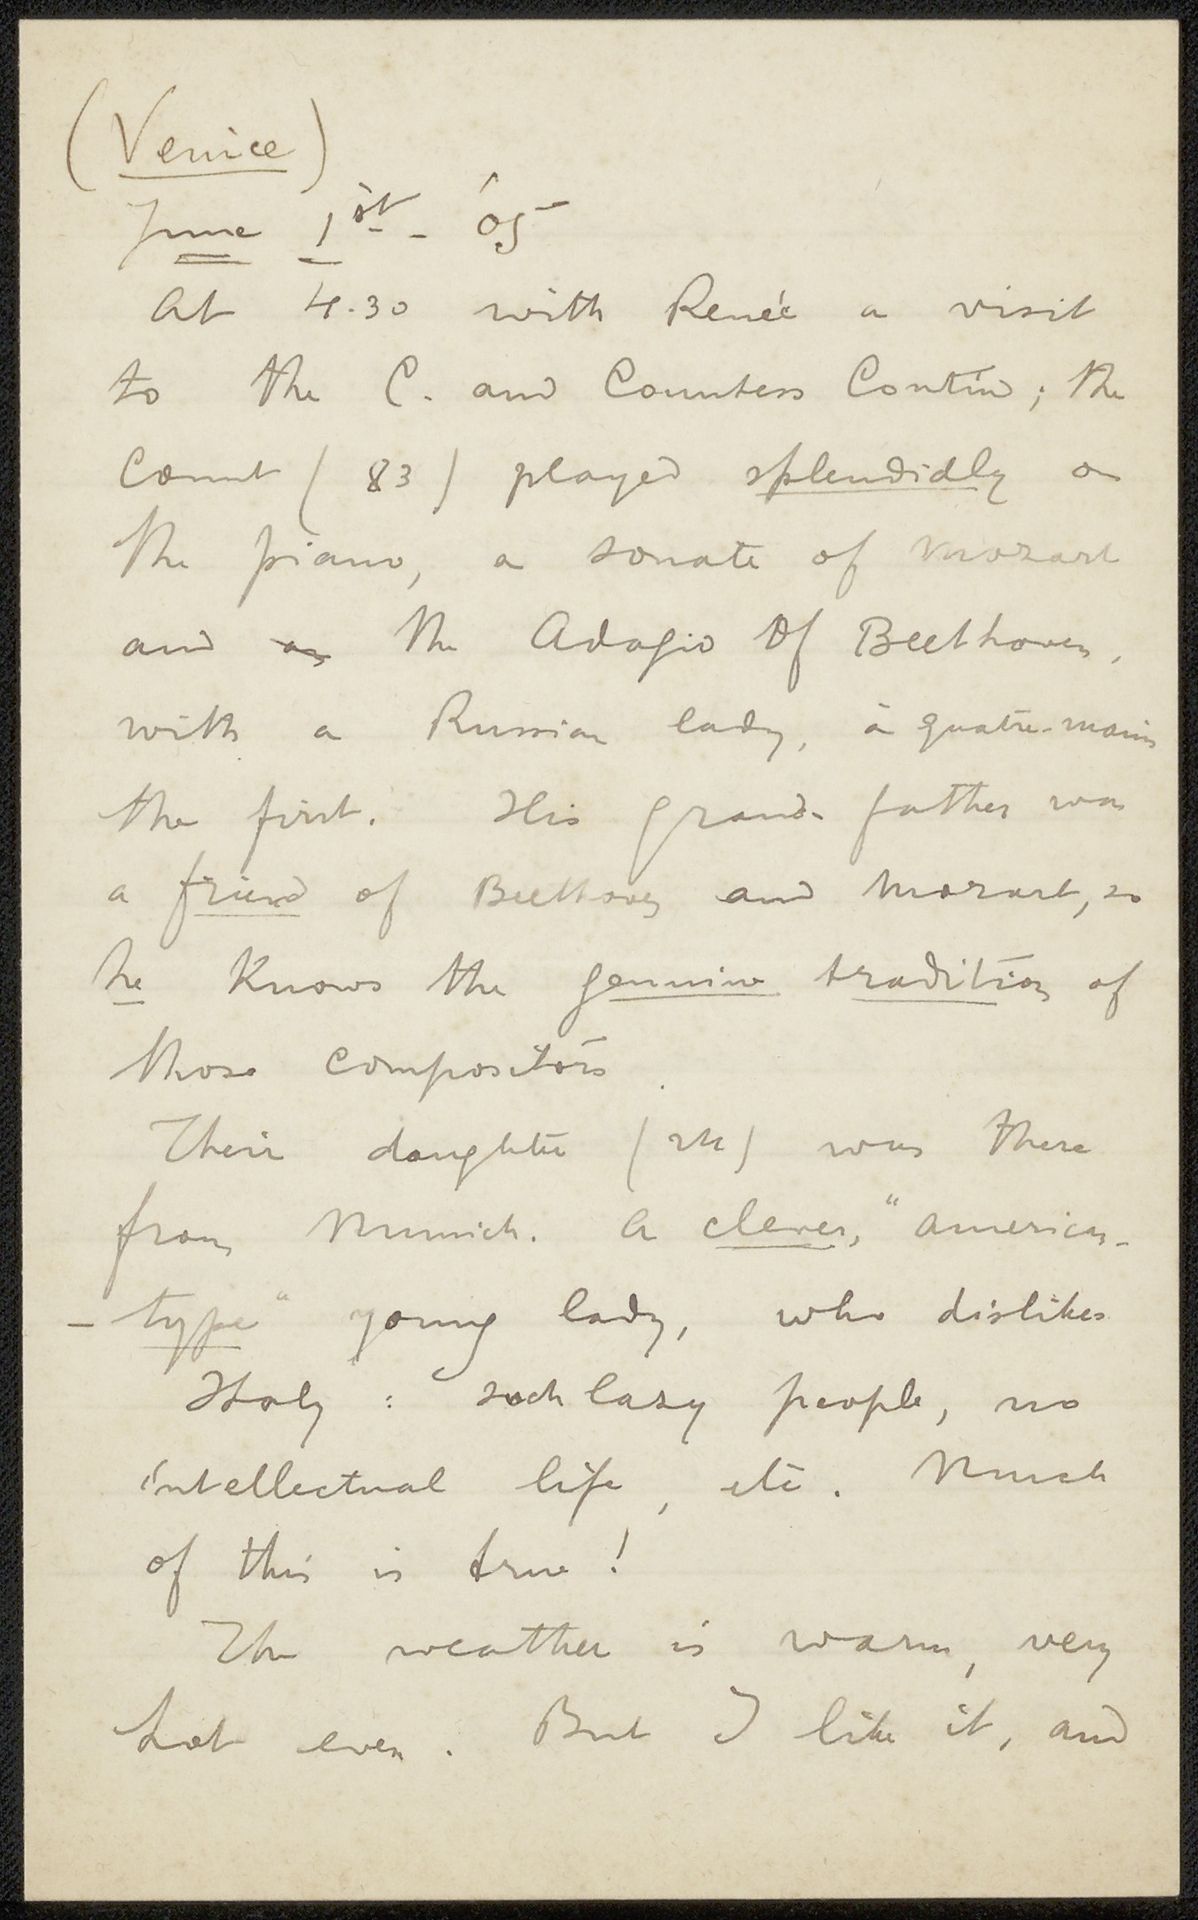 (Venice)
June 1st - '05
At 4.30 with Renée a visit
to the C. and Countess Contin; the
Count (83) played splendidly on
the piano, a sonate of Mozart
and the Adagio of Beethoven,
with a Russian lady, à quatre-mains
the first. His grand-father was
a friend of Beethoven and Mozart, so
he knows the genuine tradition of
those compositors.
Their daughter (24) was there
from Munich. A clever, "american-
-type" young lady, who dislikes
Italy: such lazy people, no
intellectual life, etc. Much
of this is true!
The weather is warm, very
hot even. But I like it, and